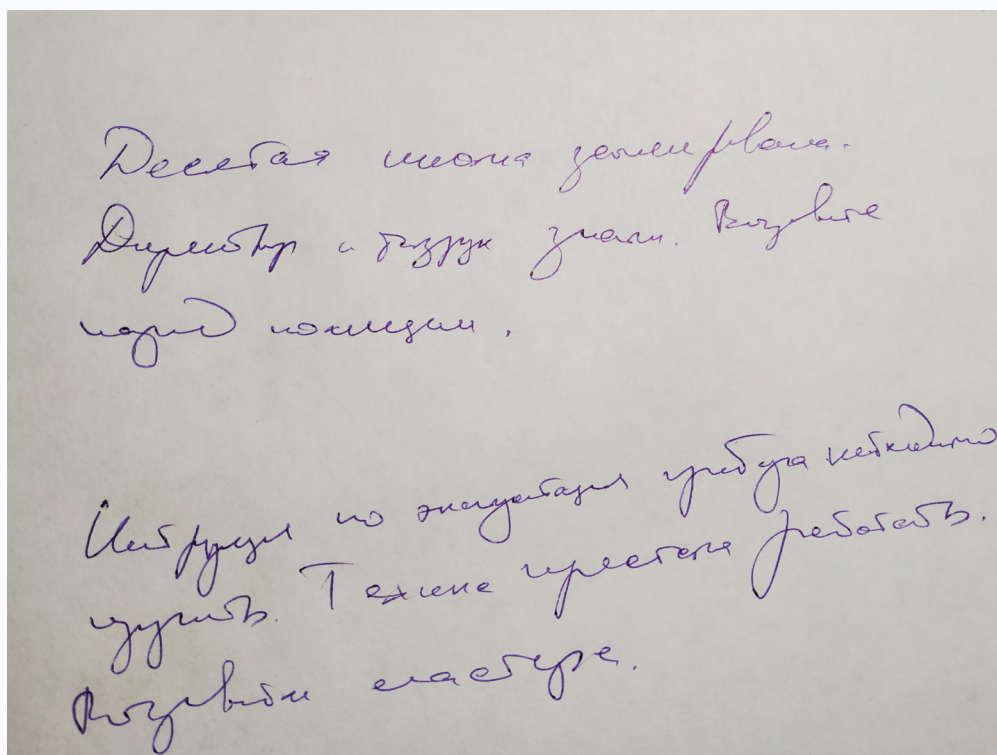 Десятая школа заминирвана.
Директор и физрук знали. Вызовите
наряд полиции.
Инструкция по эксплуатации прибора необходимо
изучить. Техника перестала работать.
Вызовите мастера.